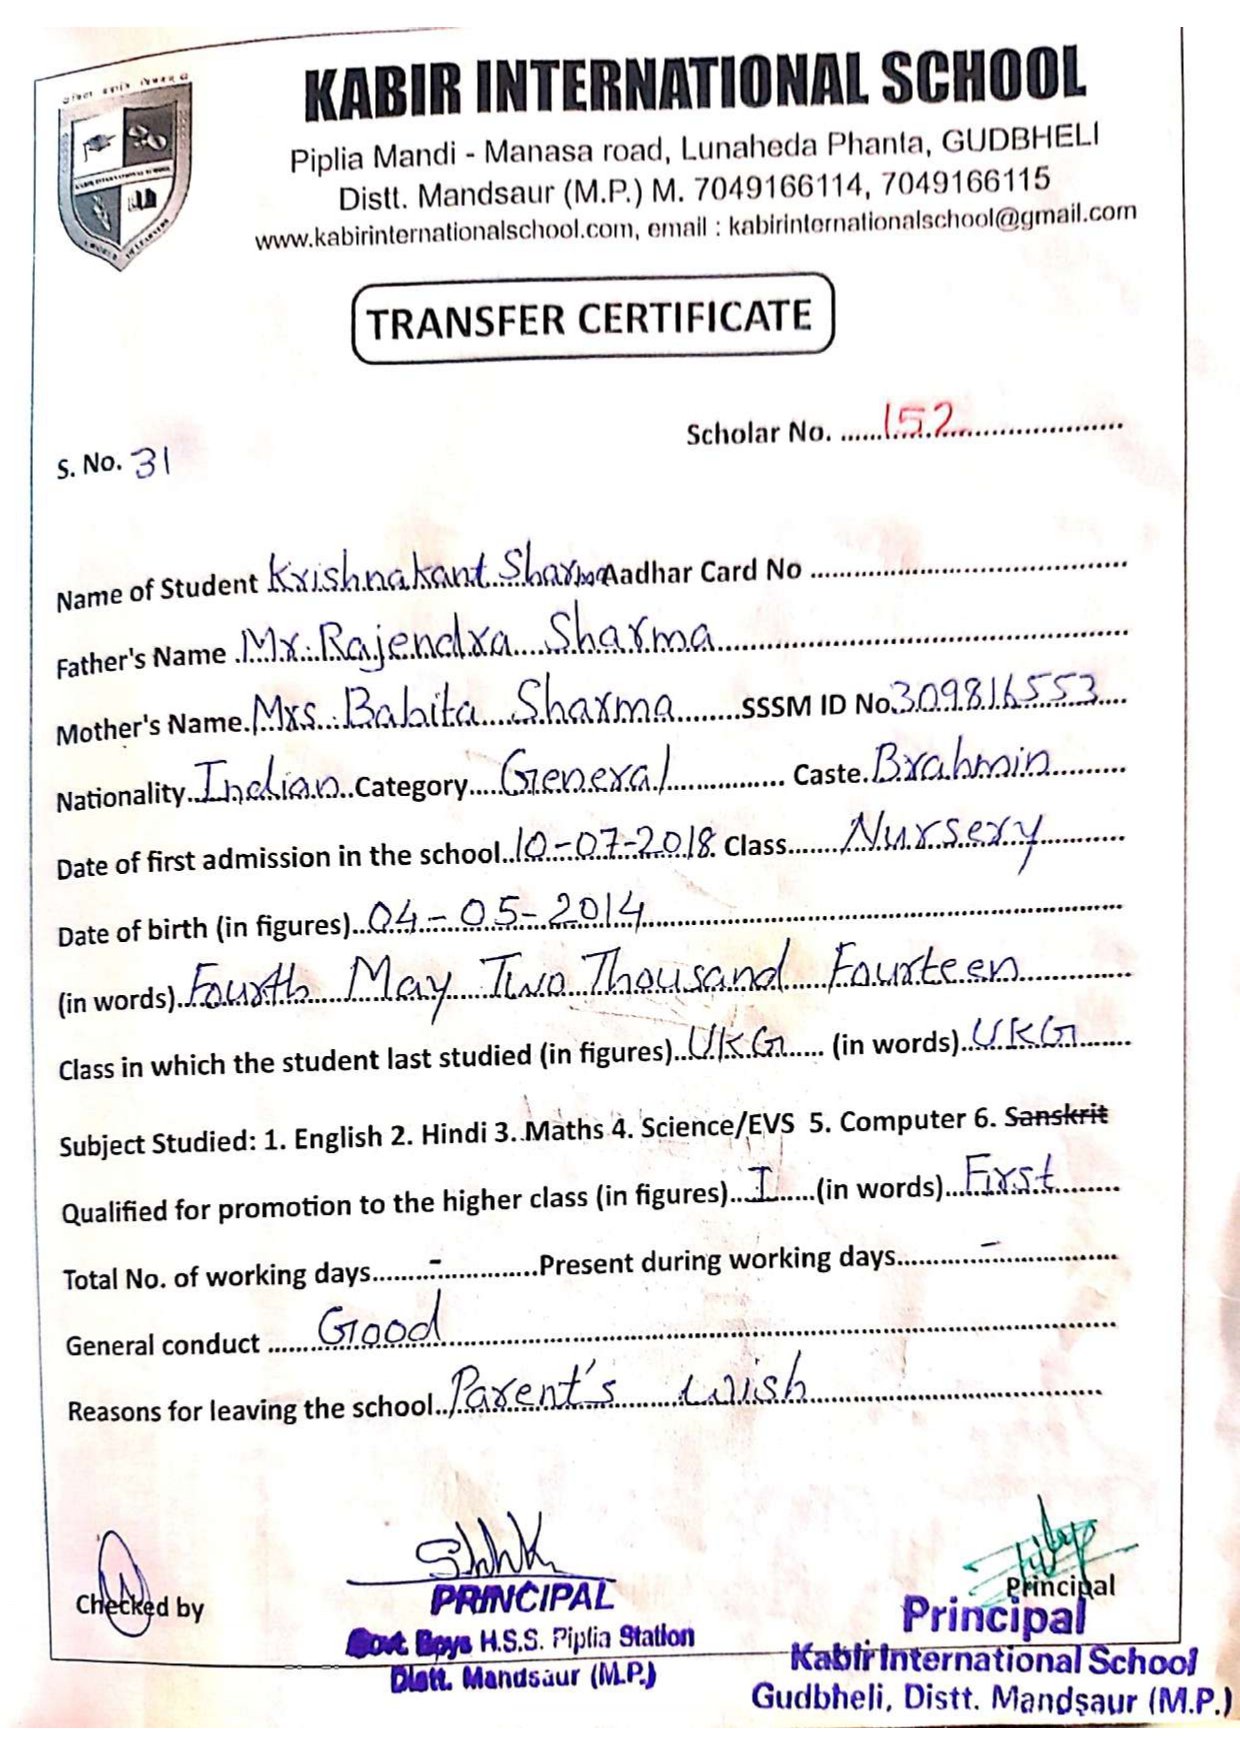 KABIR INTERNATIONAL SCHOOL
Piplia Mandi - Manasa road, Lunaheda Phanta, GUDBHELI
Distt. Mandsaur (M.P.) M. 7049166114, 7049166115
www.kabirinternationalschool.com, email : kabirinternationalschool@gmail.com
KABIR INTERNATIONAL SCHOOL
TRANSFER CERTIFICATE
Scholar No. ......152......
S. No. 31
Name of Student Krishnakant Sharma Aadhar Card No ......
Father's Name Mr. Rajendra Sharma
Mother's Name. Mrs. Babita Sharma SSSM ID No 309816553
Nationality. Indian Category General Caste. Brahmin
Date of first admission in the school 10-07-2018 Class Nursery
Date of birth (in figures) 04-05-2014
(in words) Fourth May Two Thousand Fourteen
Class in which the student last studied (in figures) UKG (in words) UKG
Subject Studied: 1. English 2. Hindi 3. Maths 4. Science/EVS 5. Computer 6. Sanskrit
Qualified for promotion to the higher class (in figures) I (in words) First
Total No. of working days - Present during working days -
General conduct Good
Reasons for leaving the school Parent's wish
Checked by
PRINCIPAL
Govt. Boys H.S.S. Piplia Station
Distt. Mandsaur (M.P.)
Principal
Principal
Kabir International School
Gudbheli, Distt. Mandsaur (M.P.)